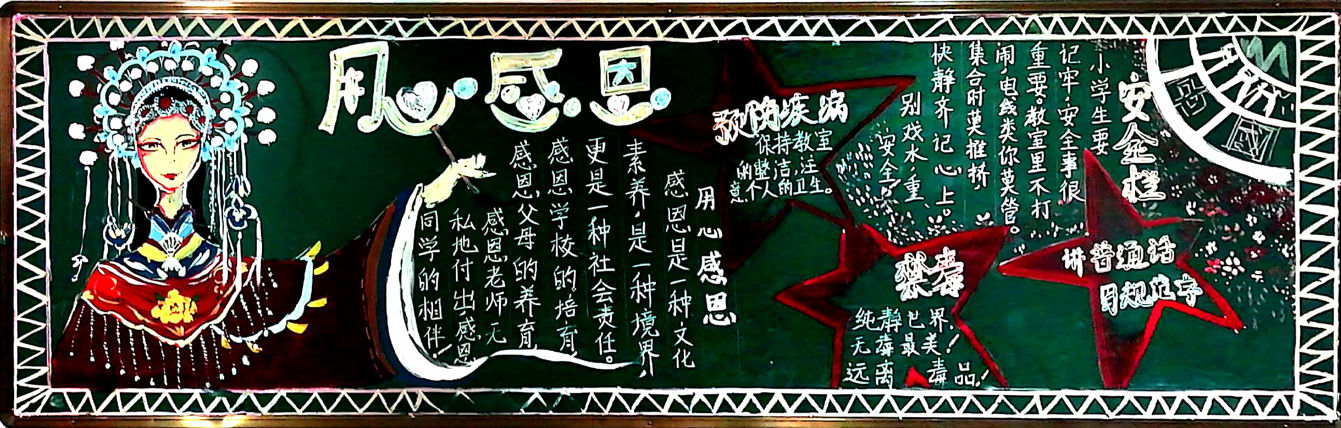 用心感恩
用心感恩
感恩是一种文化
素养,是一种境界,
更是一种社会责任。
感恩学校的培育
感恩父母的养育
感恩老师无
私地付出感恩
同学的相伴!
预防疾病
保持教室
的整洁,注
意个人的卫生。
安全栏
小学生要
记牢,安全事很
重要。教室里不打
闹,电线类你莫管。
集合时莫推挤,
快静齐记心上。
别戏水,重
安全。
禁毒
纯静已界,
无毒最美!
远离毒品!
讲普通话
写规范字